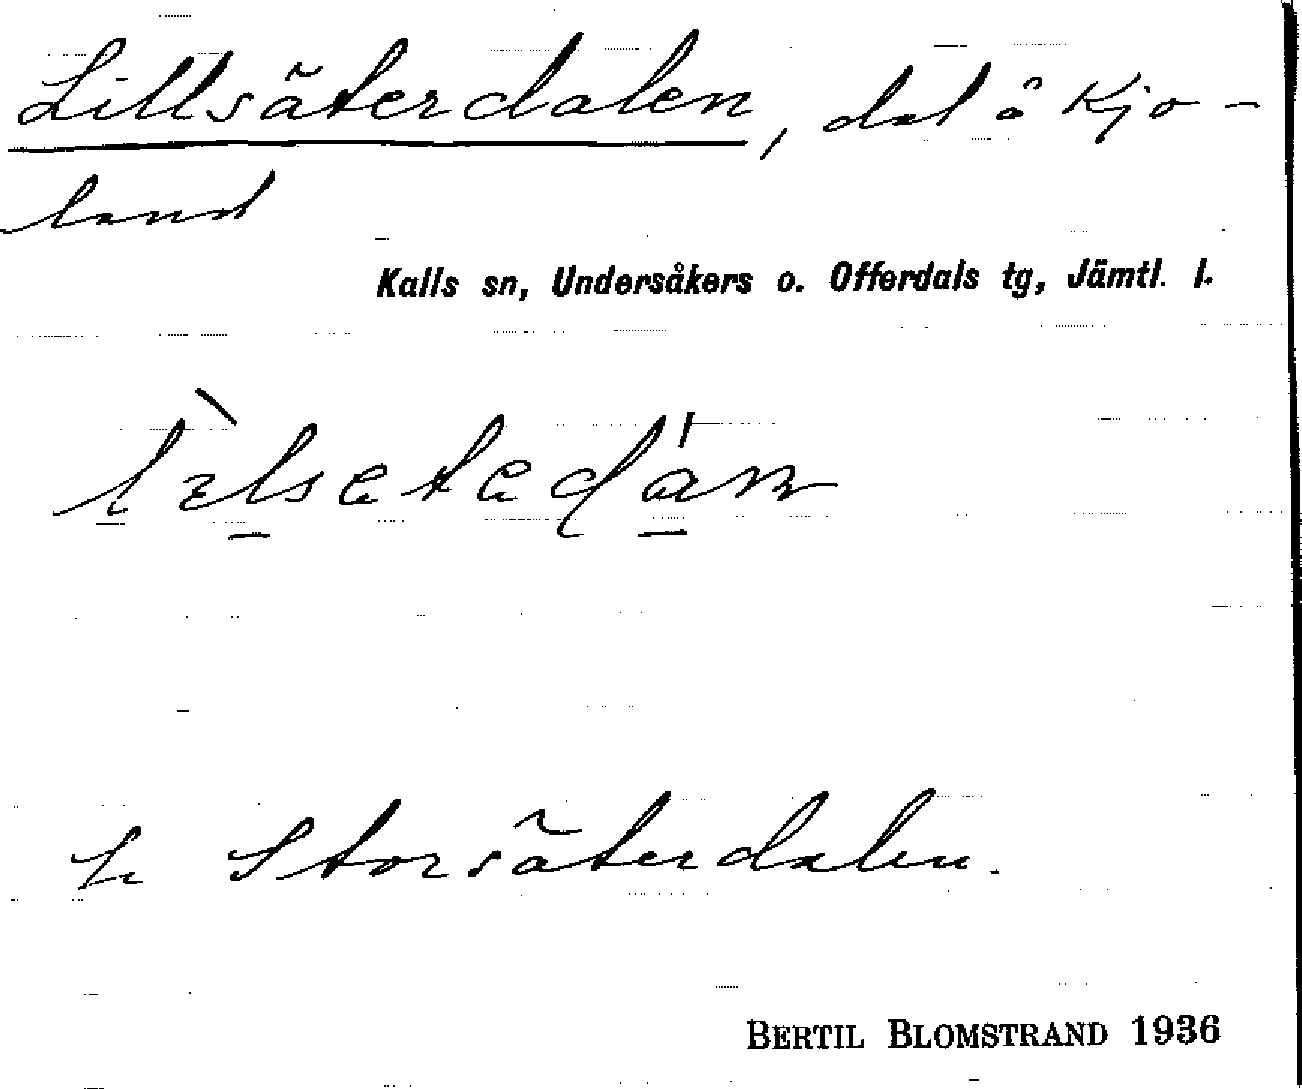 Lillsäterdalen, dal å Kjo-
land
Kalls sn, Undersåkers o. Offerdals tg, Jämtl. l.
Se Storsäterdalen.
BERTIL BLOMSTRAND 1936